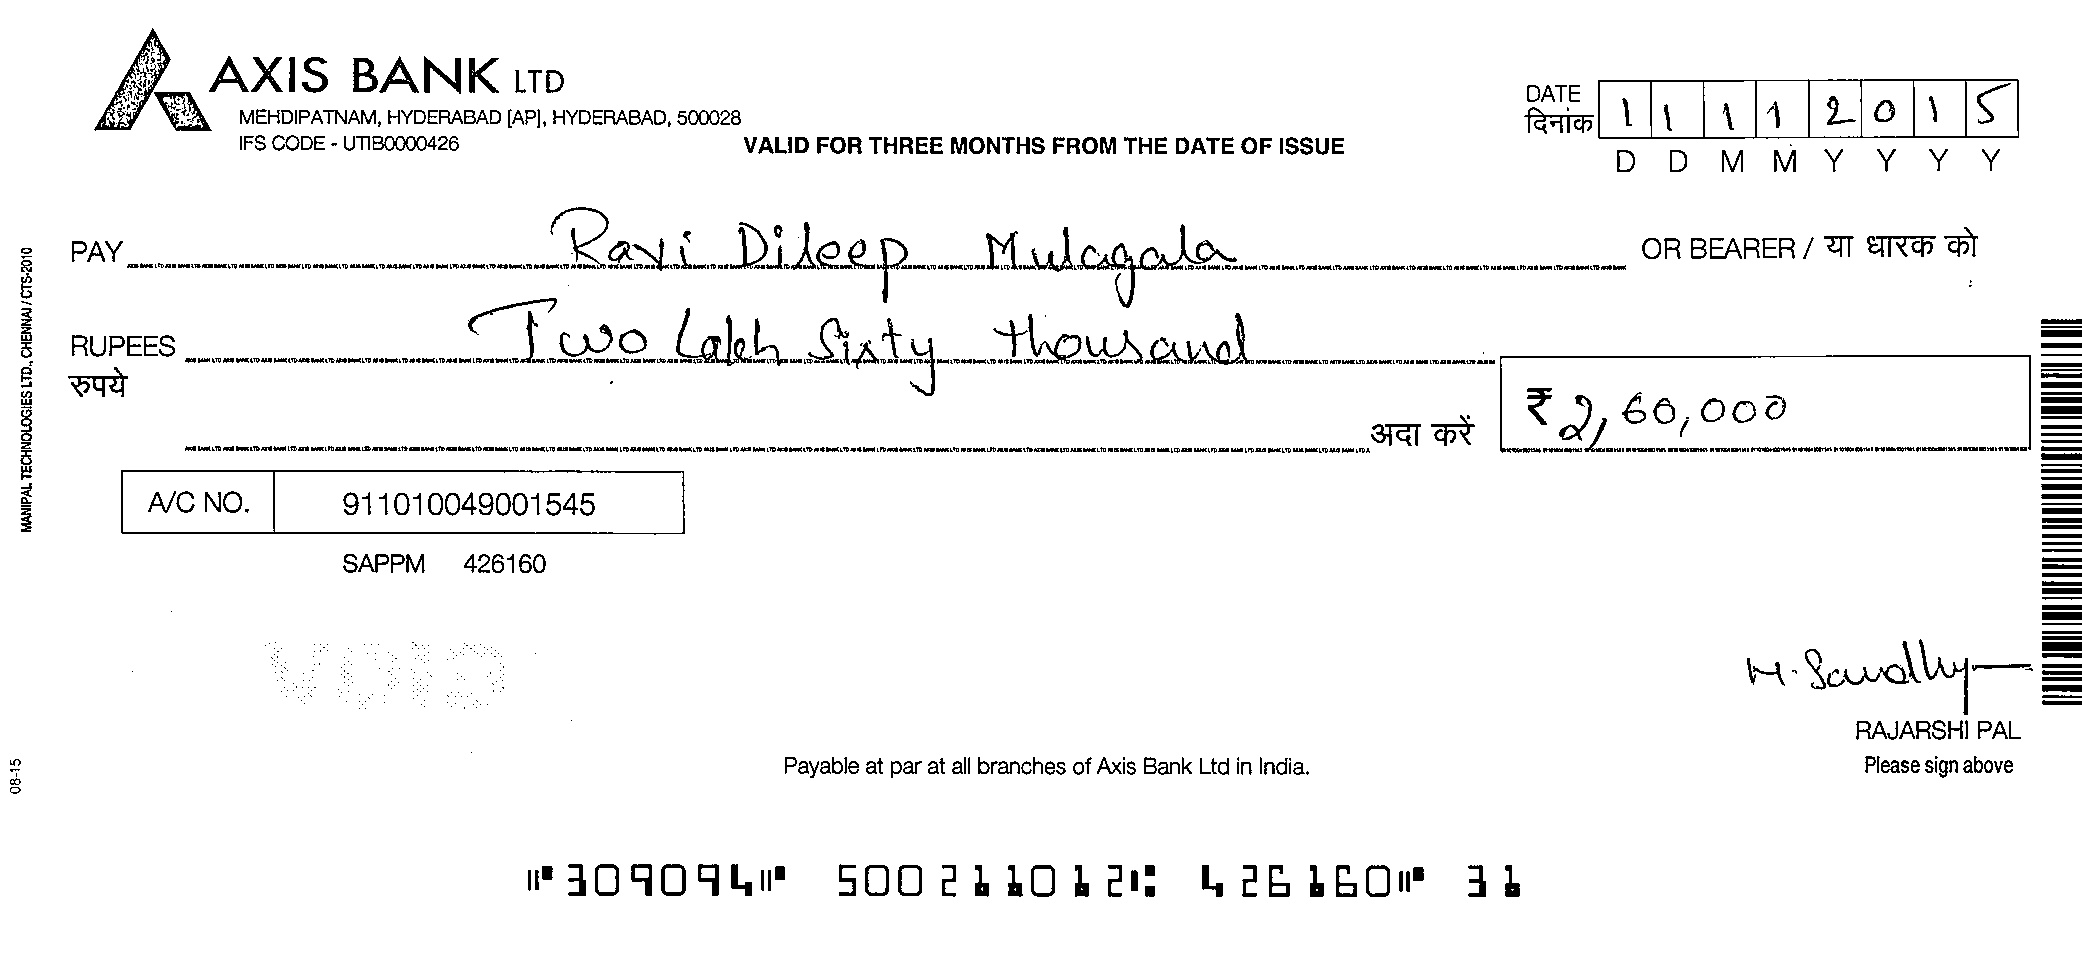 AXIS BANK LTD
MEHDIPATNAM, HYDERABAD [AP], HYDERABAD, 500028
IFS CODE - UTIB0000426
VALID FOR THREE MONTHS FROM THE DATE OF ISSUE
DATE
दिनांक
1 1 1 1 2 0 1 5
D D M M Y Y Y Y
PAY Ravi Dileep Mulagala OR BEARER / या धारक को
RUPEES Two Lakh Sixty thousand
रुपये
अदा करें ₹ 2,60,000
A/C NO. 911010049001545
SAPPM 426160
VOID
M. Sandhy
RAJARSHI PAL
Please sign above
Payable at par at all branches of Axis Bank Ltd in India.
MANIPAL TECHNOLOGIES LTD., CHENNAI / CTS-2010
08-15
⑈309094⑈ 500211012⑆ 426160⑈ 31